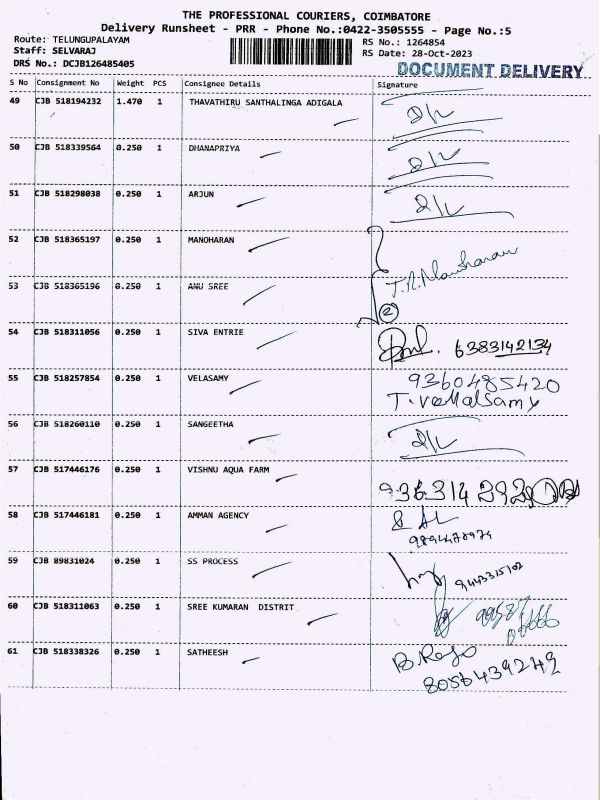 THE PROFESSIONAL COURIERS, COIMBATORE
Delivery Runsheet - PRR - Phone No.:0422-3505555 - Page No.:5
Route: TELUNGUPALAYAM RS No.: 1264854
Staff: SELVARAJ RS Date: 28-Oct-2023
DRS No.: DCJB126485405 DOCUMENT DELIVERY
S No Consignment No Weight PCS Consignee Details Signature
49 CJB 518194232 1.470 1 THAVATHIRU SANTHALINGA ADIGALA
50 CJB 518339564 0.250 1 DHANAPRIYA
51 CJB 518298038 0.250 1 ARJUN
52 CJB 518365197 0.250 1 MANOHARAN
T.R. Manoharan
53 CJB 518365196 0.250 1 ANU SREE
2
54 CJB 518311056 0.250 1 SIVA ENTRIE 6383142134
55 CJB 518257854 0.250 1 VELASAMY 9360485420
56 CJB 518260110 0.250 1 SANGEETHA
57 CJB 517446176 0.250 1 VISHNU AQUA FARM
58 CJB 517446181 0.250 1 AMMAN AGENCY
59 CJB 89831024 0.250 1 SS PROCESS
60 CJB 518311063 0.250 1 SREE KUMARAN DISTRIT
61 CJB 518338326 0.250 1 SATHEESH B. Raja
8056439249